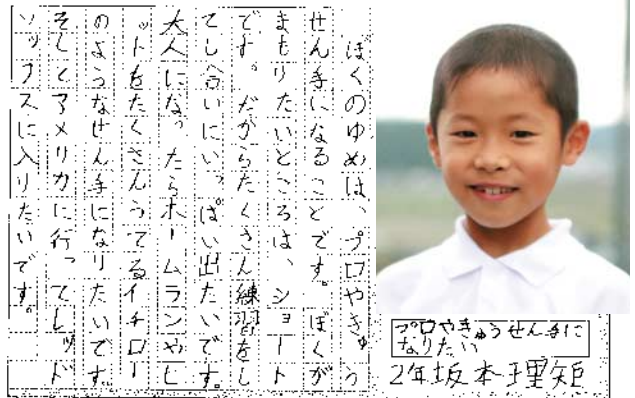 ぼくのゆめは、プロやきゅう
せん手になることです。ぼくが
まもりたいところは、ショート
です。だからたくさん練習をし
てし合いにいっぱい出たいです。
大人になったらホームランやヒ
ットをたくさんうてるイチロー
のようなせん手になりたいです。
そしてアメリカに行ってレッド
ソックスに入りたいです。
プロやきゅうせん手に
なりたい
2年坂本理矩